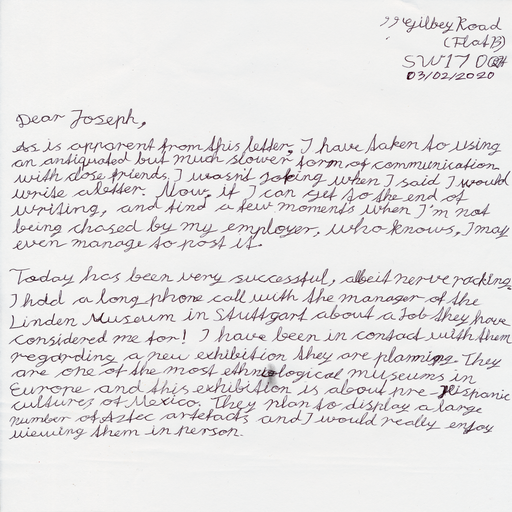 Gilbey Road
(Flat B)
SW17 0QH
03/02/2020
Dear Joseph,
As is apparent from this letter, I have taken to using
an antiquated but much slower form of communication
with close friends. I wasn't joking when I said I would
write a letter. Now, if I can get to the end of
writing, and find a few moments when I'm not
being chased by my employer, who knows, I may
even manage to post it.
Today has been very successful, albeit nerve racking.
I had a long phone call with the manager of the
Linden Museum in Stuttgart about a Job they have
considered me for! I have been in contact with them
regarding a new exhibition they are planning. They
are one of the most ethnological museums in
Europe and this exhibition is about pre-Hispanic
cultures of Mexico. They plan to display a large
number of Aztec artefacts and I would really enjoy
viewing them in person.